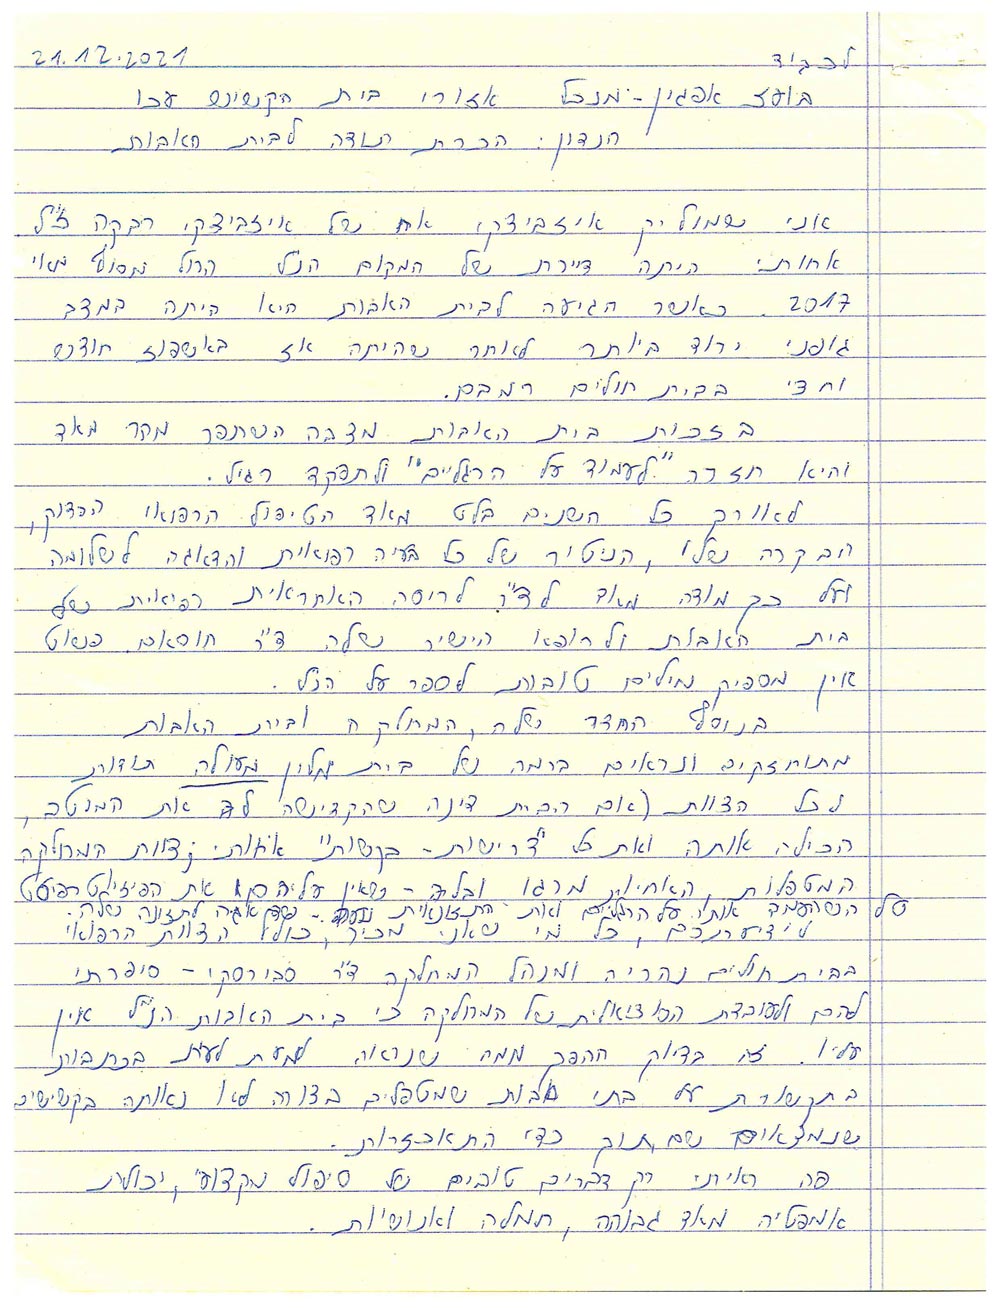 21.12.2021
לכבוד
בועז אפגין - מנכל אזורי בית הקשיש עכו
הנדון: הכרת תודה לבית האבות
אני שמוליק איזביצקי אח של איזביצקי רבקה ז"ל
אחותי היתה דיירת של המקום הנ"ל החל מסוף מאי
2017. כאשר הגיעה לבית האבות היא היתה במצב
גופני ירוד ביותר לאחר שהיתה אז באשפוז חודש
וחצי בבית חולים רמבם.
בזכות בית האבות מצבה השתפר מאד
והיא חזרה "לעמוד על הרגליים" ולתפקד רגיל.
לאורך כל השנים בלט מאד הטיפול הרפואי הדוק,
הבקרה שלו, הניטור של כל בעיה רפואית והדאגה לשלומה
ועל כך מודה מאוד לד"ר לריסה האחראית רפואית של
בית האבות ולרופא הישיר שלה ד"ר חוסאם. פשוט
אין מספיק מילים טובות לספר על הנ"ל.
בנוסף החדר שלה, המחלקה ובית האבות
מתוחזקים ונראים ברמה של בית מלון מעולה תודות
לכל הצוות (אם הבית דינה שהקדישה לה את המיטב,
הכילה אותה ואת כל "דרישות - בקשות" אחותי. צוות המחלקה
המטפלות, האחיות מרגו - שאין עליהם את הפיזיוטרפיסט
של
שהעמיד אותה על הרגליים ואת התזונאית - שדאגה לתזונה שלה.
לידיעתכם, כל מי שאני מכיר, כולל הצוות הרפואי
בבית חולים נהריה ומנהל המחלקה ד"ר סבורסקי - סיפרתי
להם ולעובדת הסוציאלית של המחלקה כי בית האבות הנ"ל אין
עליו. זה בדיוק ההפך ממה שנראה לעת לעת בכתבות
בתקשורת על בתי אבות שמטפלים בצורה לא נאותה בקשישים
שנמצאים שם, תוך כדי התאכזרות.
פה ראיתי רק דברים טובים של טיפול מקצועי, יכולת
אמפטיה מאד גבוהה, חמלה ואנושיות.